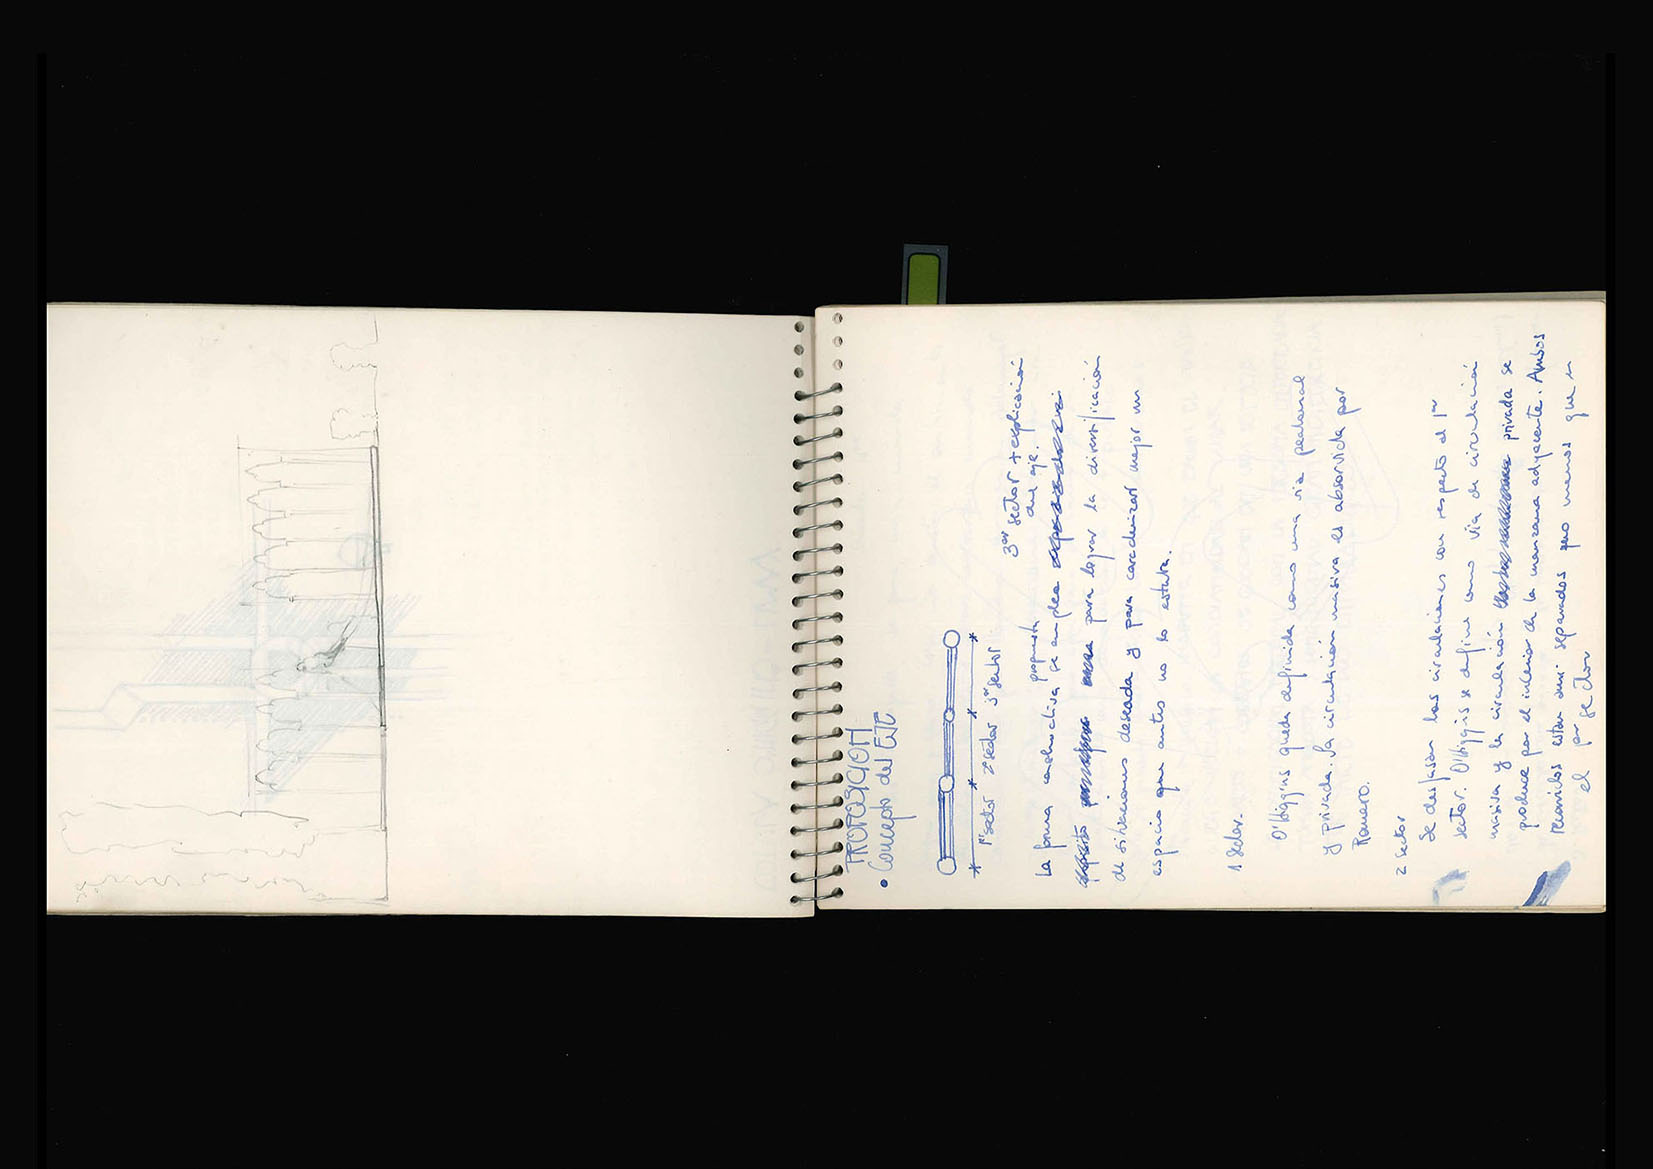 PROPOSICION
• Concepto del EJE
1er sector 2º sector 3er sector
3er sector + explicación
del eje.
La forma constructiva propuesta se emplea
para lograr la diversificación
de situaciones deseada y para caracterizar mejor un
espacio que antes no lo estaba.
1 Sector.
O'Higgins queda definida como una via peatonal
y privada. la circulación masiva es absorvida por
Romero.
2 sector
Se desfasan las circulaciones con respecto al 1er
sector. O'Higgins se define como via de circulación
masiva y la circulación privada se
produce por el interior de la manzana adyacente. Ambos
recorridos estan aun separados pero menos que en
el 1er sector